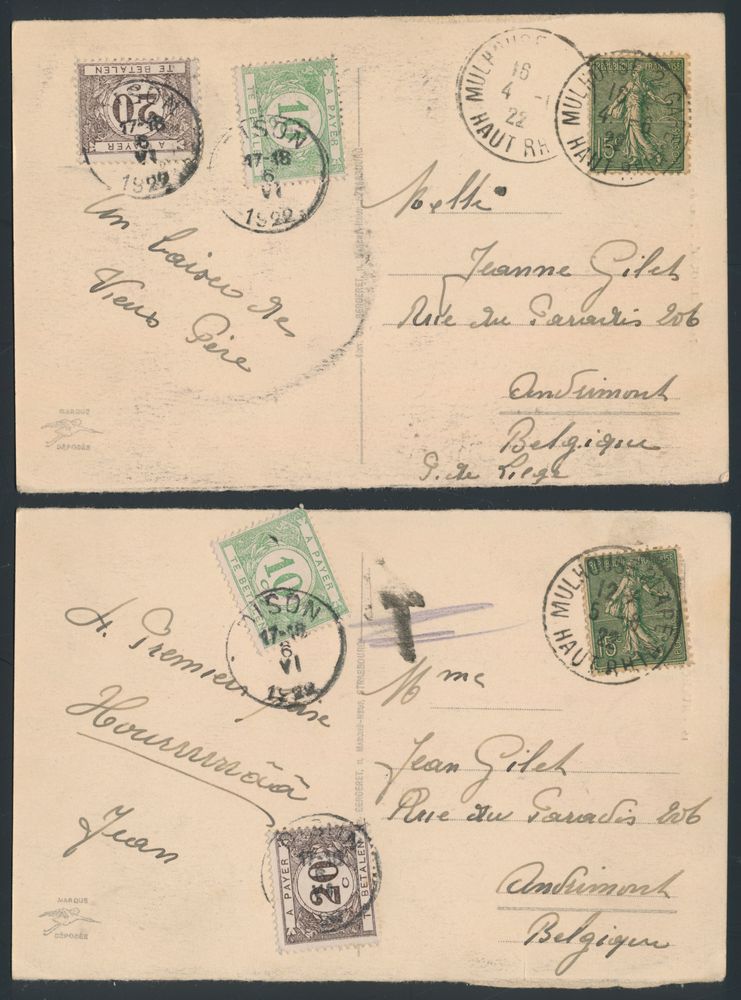 TE BETALEN
20
A PAYER
A PAYER
TE BETALEN
DISON
17-18
6
VI
1922
DISON
17-18
6
VI
1922
MULHOUSE
16
4 - 
22
HAUT RH
REPUBLIQUE FRANÇAISE
15c
MULHOUSE
HAUT
Un baiser de
Vieux Père
MARQUE
DÉPOSÉE
Melle
Jeanne Gilet
Rue du Paradis 206
Andrimont
Belgique
P. de Liege
A PAYER
10
c
TE BETALEN
DISON
17-18
6
VI
1922
T
MULHOUSE
12
5
HAUT RHIN
15c
A. Premier
Jean
MARQUE
DÉPOSÉE
A PAYER
20
c
TE BETALEN
BERGERET, STRASBOURG
Mme
Jean Gilet
Rue du Paradis 206
Andrimont
Belgique